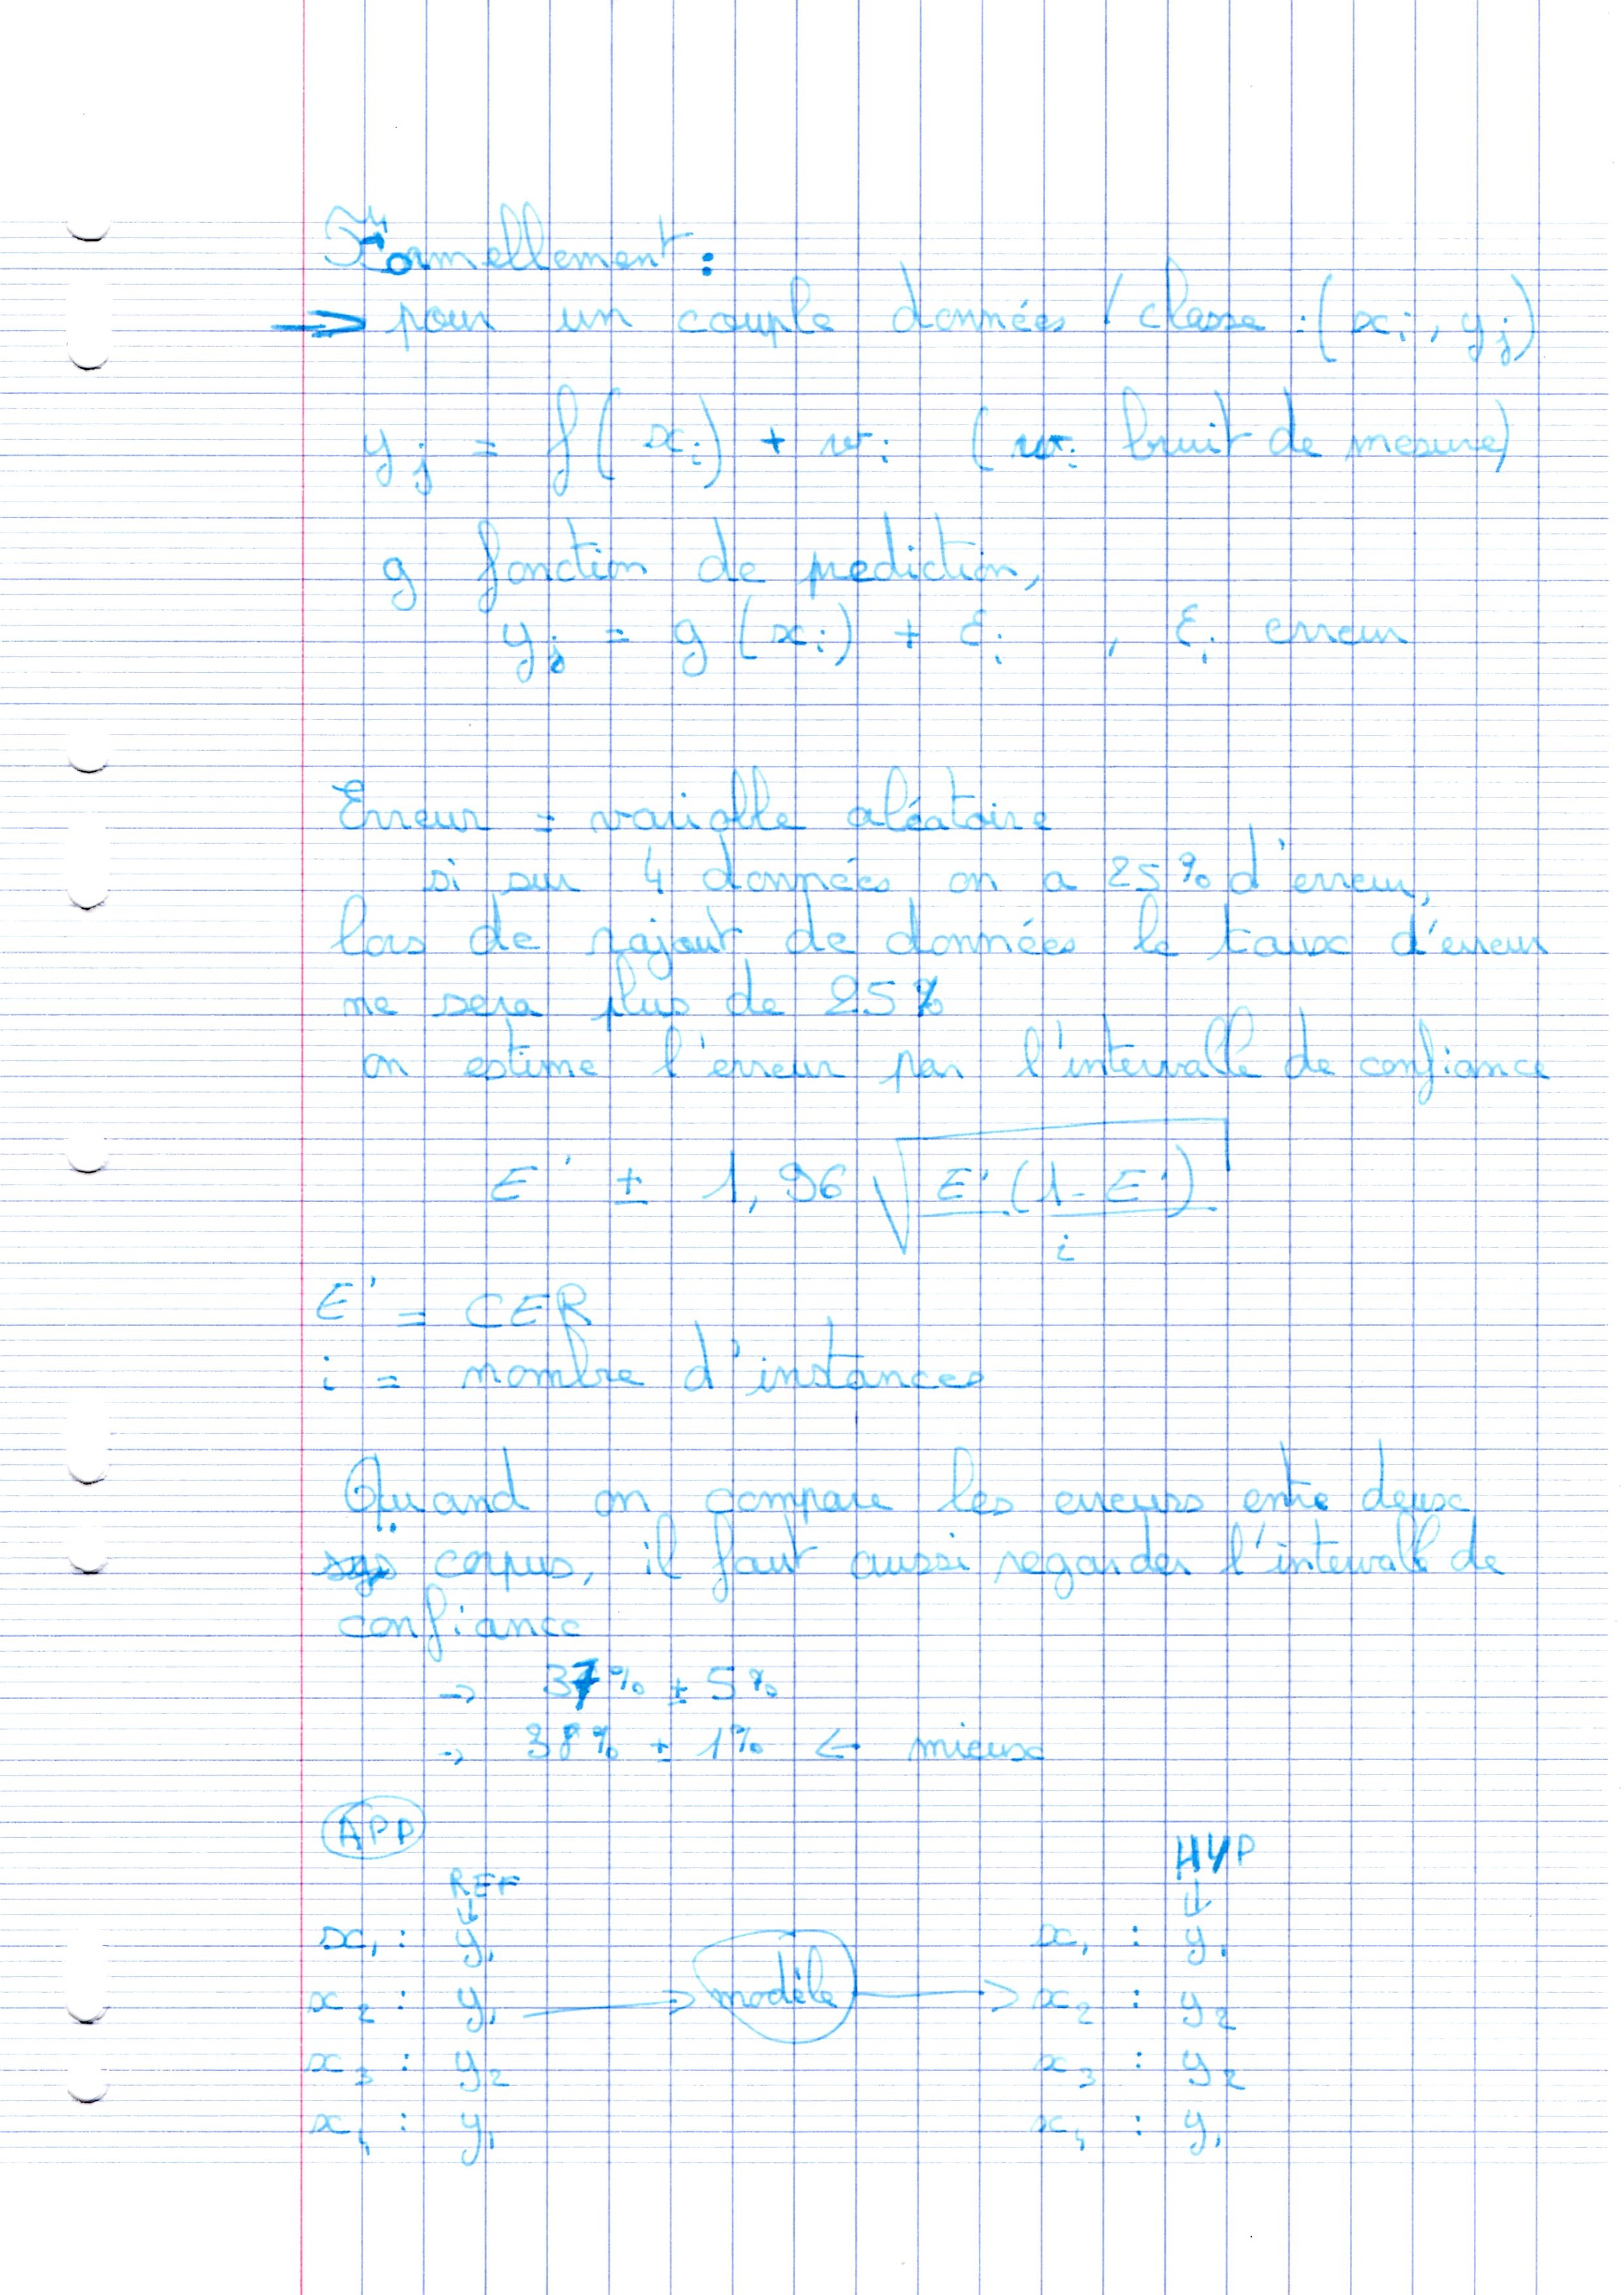 Formellement :
→ pour un couple données / classe : (xi, yj)
yj = f(xi) + wi (wi bruit de mesure)
g fonction de prediction,
yj = g(xi) + εi , εi erreur
Erreur = variable aléatoire
si sur 4 données on a 25% d'erreur,
lors de rajout de données le taux d'erreur
ne sera plus de 25%
on estime l'erreur par l'intervalle de confiance
E' ± 1,96 √(E'(1-E')/i)
E' = CER
i = nombre d'instances
Quand on compare les erreurs entre deux
corpus, il faut aussi regarder l'intervalle de
confiance
→ 37% ± 5%
→ 38% ± 1% ← mieux
APP
HYP
REF
↓ ↓
x1 : y1 x1 : y1
x2 : y1 → modèle → x2 : y2
x3 : y2 x3 : y2
x4 : y1 x4 : y1